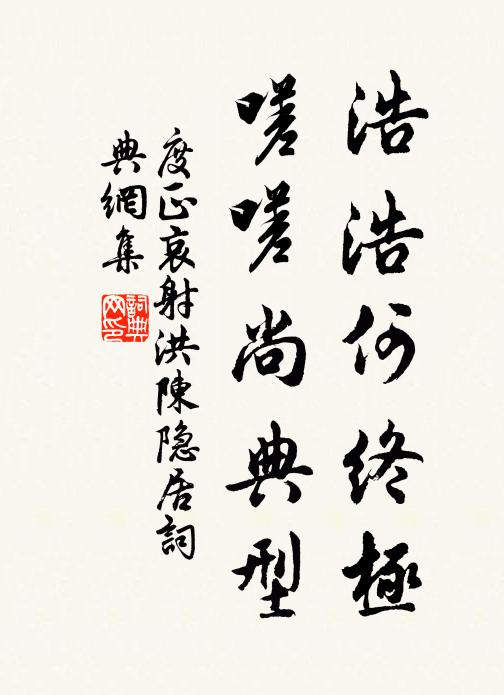 浩浩何終極
嗟嗟尚典型
度正哀射洪陳隐居詞
典網集
詞典网印